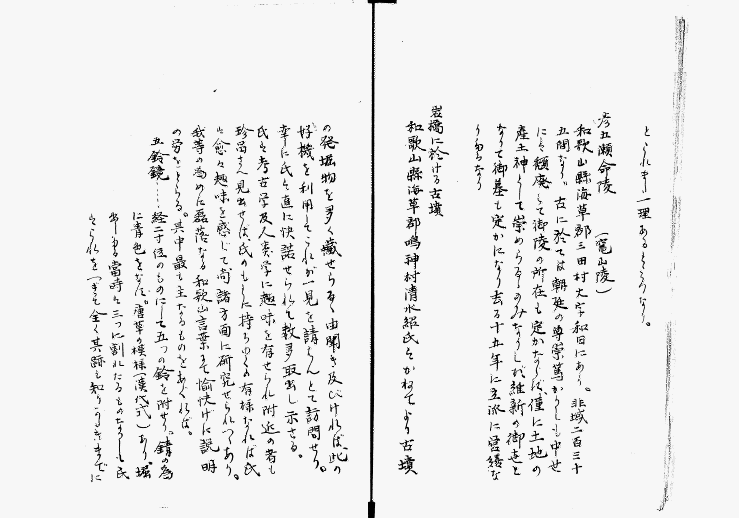 とこれ亦一理あるところなり。
彦五瀬命陵 (竈山陵)
和歌山縣海草郡三田村大字和田にあり。兆域二百三十
五間なり。古に於ては朝廷の尊崇篤かりしも中世
に至頽廃して御陵の所在も定かならず、僅に土地の
産土神として崇めらるゝのみなりしが維新の御世と
なりて御墓も定かになり去る十五年に立派に営繕な
りたるなり
岩橋に於ける古墳
和歌山縣海草郡鳴神村清水紹氏そかねてより古墳
の発掘物を多く蔵せらるゝ由聞き及びければ、此の
好機を利用してこれが一見を請はんとて訪問せり。
幸に氏は直に快諾せられて数多取出し示さる。
氏は考古学及人類学に趣味を存せられ附近の者も
珍品さへ見出せば氏のもとに持ちゆくの有様なれば氏
は愈々趣味を感じて尚諸方面に研究せられつゝあり。
我等の為めに磊落なる和歌山言葉にて愉快げに説明
の労をとらる。其中最も主なるものをあぐれば。
五鈴鏡……経二寸位のものにして五つの鈴を附せり。錆の為
に青色をなす。唐草の模様(漢代式)あり、掘
出しの當時は三つに割れたるものなりしも氏
はこれをつぎて全く其跡を知りうるまでに